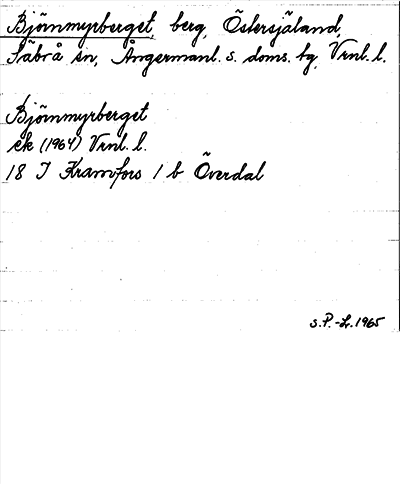 Björnmyrberget, berg, Östersjäland,
Säbrå sn, Ångermanl. s. doms. tg, Vrnl. l.
Björnmyrberget
ek (1964) Vrnl. l.
18 J Kramfors 1 b Överdal
S.P.-L. 1965